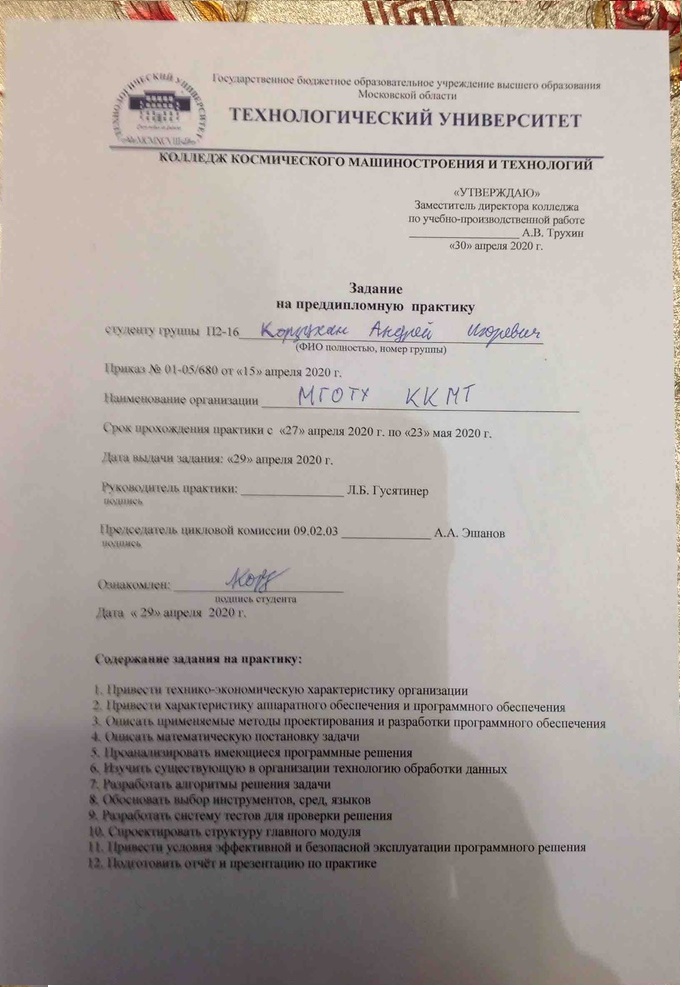 ТЕХНОЛОГИЧЕСКИЙ УНИВЕРСИТЕТ
Государственное бюджетное образовательное учреждение высшего образования
Московской области
ТЕХНОЛОГИЧЕСКИЙ УНИВЕРСИТЕТ
КОЛЛЕДЖ КОСМИЧЕСКОГО МАШИНОСТРОЕНИЯ И ТЕХНОЛОГИЙ
«УТВЕРЖДАЮ»
Заместитель директора колледжа
по учебно-производственной работе
__________________ А.В. Трухин
«30» апреля 2020 г.
Задание
на преддипломную практику
студенту группы П2-16 Андрей Игоревич
(ФИО полностью, номер группы)
Приказ № 01-05/680 от «15» апреля 2020 г.
Наименование организации МГОТУ ККМТ
Срок прохождения практики с «27» апреля 2020 г. по «23» мая 2020 г.
Дата выдачи задания: «29» апреля 2020 г.
Руководитель практики: _________________ Л.Б. Гусятинер
подпись
Председатель цикловой комиссии 09.02.03 _______________ А.А. Эшанов
подпись
Ознакомлен:
подпись студента
Дата « 29» апреля 2020 г.
Содержание задания на практику:
1. Привести технико-экономическую характеристику организации
2. Привести характеристику аппаратного обеспечения и программного обеспечения
3. Описать применяемые методы проектирования и разработки программного обеспечения
4. Описать математическую постановку задачи
5. Проанализировать имеющиеся программные решения
6. Изучить существующую в организации технологию обработки данных
7. Разработать алгоритмы решения задачи
8. Обосновать выбор инструментов, сред, языков
9. Разработать систему тестов для проверки решения
10. Спроектировать структуру главного модуля
11. Привести условия эффективной и безопасной эксплуатации программного решения
12. Подготовить отчёт и презентацию по практике